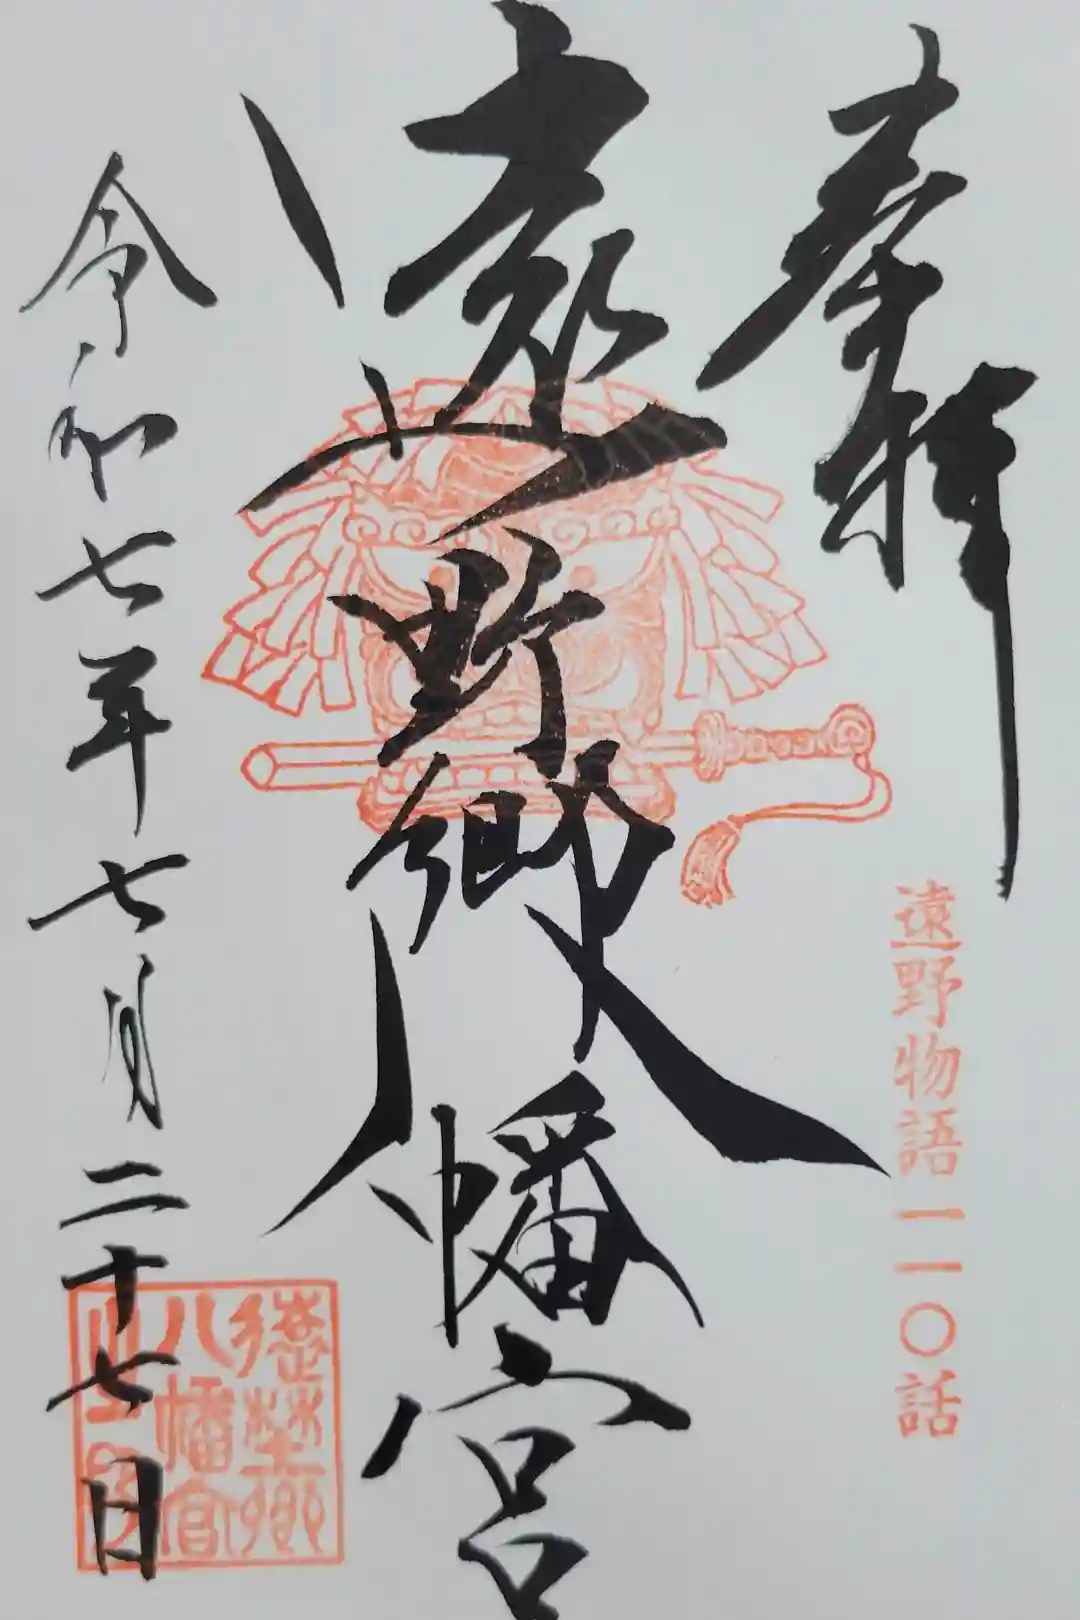 奉拝
遠野物語一一〇話
遠野郷八幡宮
令和七年七月二十七日
遠野郷
八幡宮